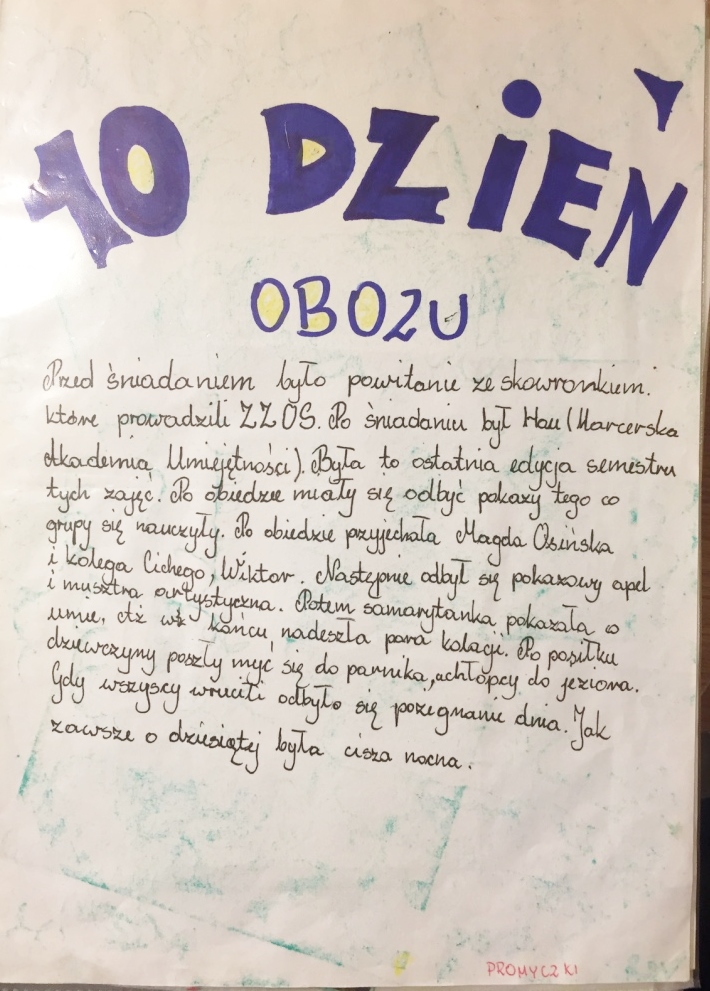 10 DZIEŃ
OBOZU
Przed śniadaniem było powitanie ze skowronkiem.
które prowadzili ZZOS. Po śniadaniu był Hau (Harcerska
Akademia Umiejętności). Była to ostatnia edycja semestru
tych zajęć. Po obiedzie miały się odbyć pokazy tego co
grupy się nauczyły. Po obiedzie przyjechała Magda Osińska
i kolega Cichego, Wiktor. Następnie odbył się pokazowy apel
i musztra artystyczna. Potem samarytanka pokazała co
umie, aż w końcu nadeszła pora kolacji. Po posiłku
dziewczyny poszły myć się do parnika, a chłopcy do jeziora.
Gdy wszyscy wrucili odbyło się pożegnanie dnia. Jak
zawsze o dziesiątej była cisza nocna.
PROMYCZKI